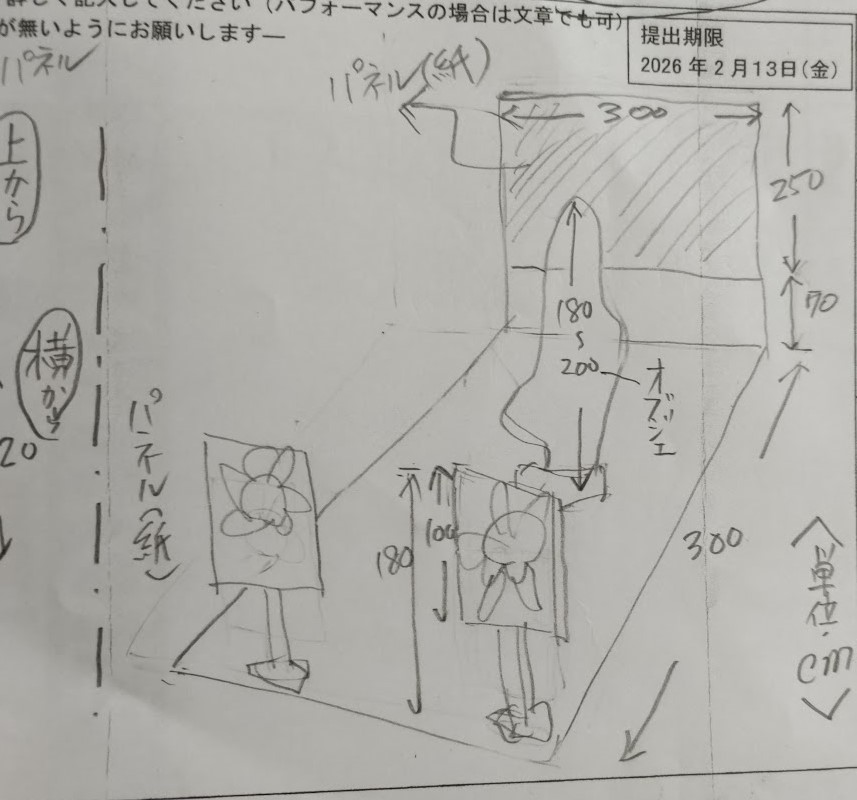 詳しく記入してください（パフォーマンスの場合は文章でも可）
が無いようにお願いします―
提出期限
2026年2月13日（金）
パネル
パネル(紙)
300
250
上から
70
180
〜
200
オブジェ
横から
20
パネル(紙)
180
100
300
〈単位・cm〉